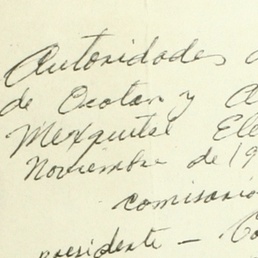 Autoridades
de Ocotan y A
Mexquitel Ele
Noviembre de 19
comisario
presidente — Co